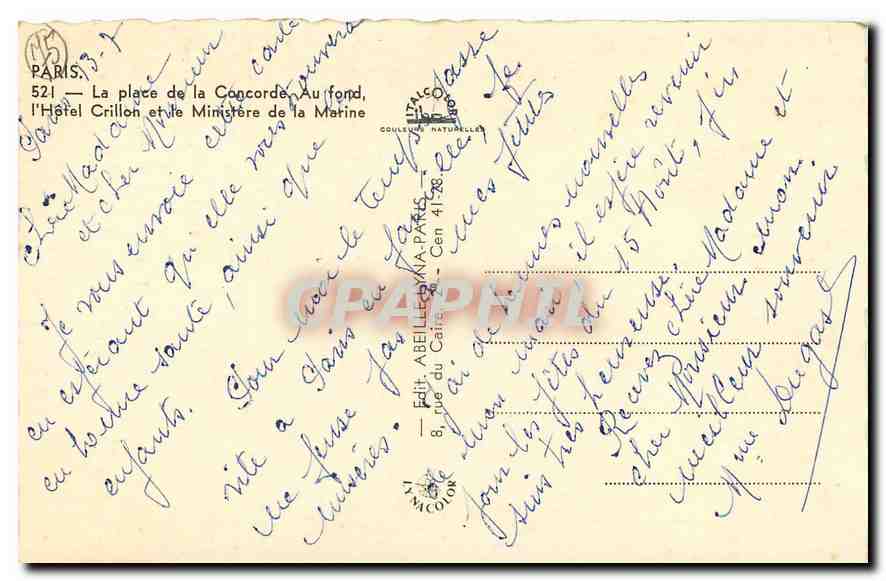 75
PARIS.
521 — La place de la Concorde. Au fond,
l'Hôtel Crillon et le Ministère de la Marine
ITALCOLOR
COULEURS NATURELLES
— Edit. ABEILLE-LYNA-PARIS —
8, rue du Caire, 2e - Cen 41-28.
LYNACOLOR
CPAPHIL
Paris 13-7
Chère Madame
et cher Monsieur
Je vous envoie cette carte
en espérant qu'elle vous trouvera
en bonne santé, ainsi que les
enfants. Pour moi le temps passe
vite à Paris en famille, je
me pense pas à mes petites
misères.
J'ai de bonnes nouvelles
de mon mari, il espère revenir
pour les fêtes du 15 Août, j'en
suis très heureuse.
Recevez chère Madame et
cher Monsieur mon
meilleur souvenir
Mme Dugast